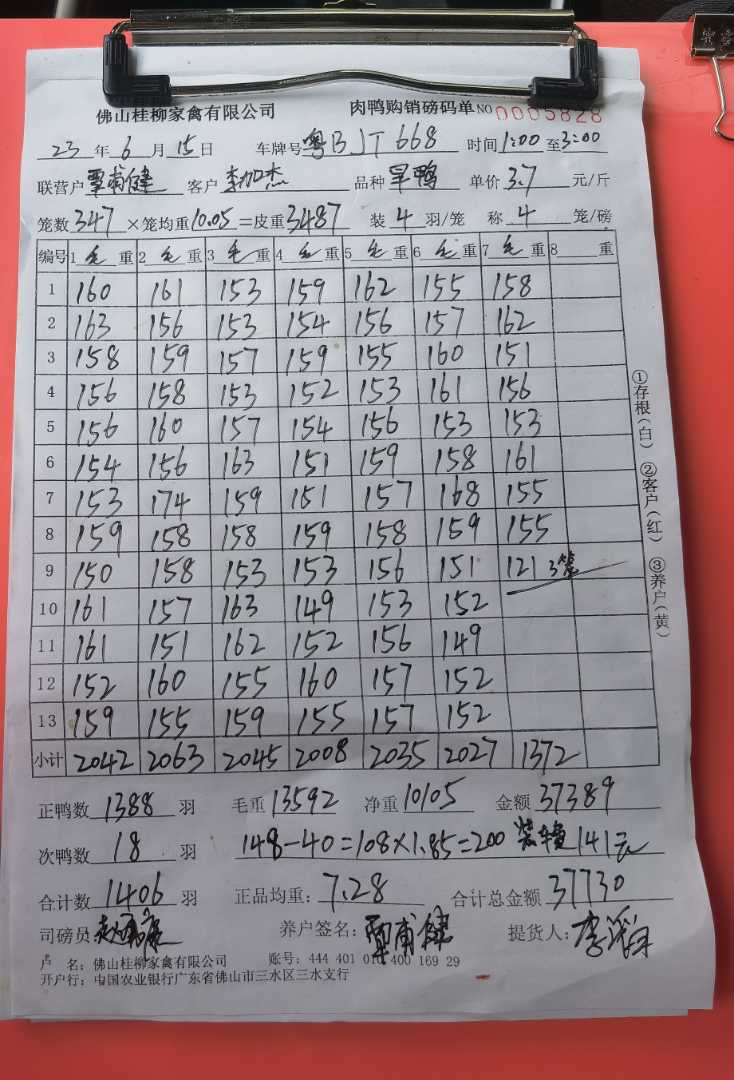 佛山桂柳家禽有限公司 肉鸭购销磅码单 NO 0005828
23 年 6 月 15 日 车牌号 粤BJT668 时间 1:00 至 3:00
联营户 覃甫健 客户 李加杰 品种 旱鸭 单价 3.7 元/斤
笼数 347 ×笼均重 10.05 =皮重 3487 装 4 羽/笼 称 4 笼/磅
编号 1 毛 重 2 毛 重 3 毛 重 4 毛 重 5 毛 重 6 毛 重 7 毛 重 8 重
1 160 161 153 159 162 155 158
2 163 156 153 154 156 157 162
3 158 159 157 159 155 160 151
4 156 158 153 152 153 161 156
5 156 160 157 154 156 153 153
6 154 156 163 151 159 158 161
7 153 174 159 151 157 168 155
8 159 158 158 159 158 159 155
9 150 158 153 153 156 151 121 3笼
10 161 157 163 149 153 152
11 161 151 162 152 156 149
12 152 160 155 160 157 152
13 159 155 159 155 157 152
小计 2042 2063 2045 2008 2035 2027 1372
正鸭数 1388 羽 毛重 13592 净重 10105 金额 37389
次鸭数 18 羽 148-40=108×1.85=200 装车费141元
合计数 1406 羽 正品均重: 7.28 合计总金额 37730
司磅员: 养户签名: 覃甫健 提货人: 李
户 名: 佛山桂柳家禽有限公司 账号: 444 401 01 400 169 29
开户行: 中国农业银行广东省佛山市三水区三水支行
①存根(白) ②客户(红) ③养户(黄)